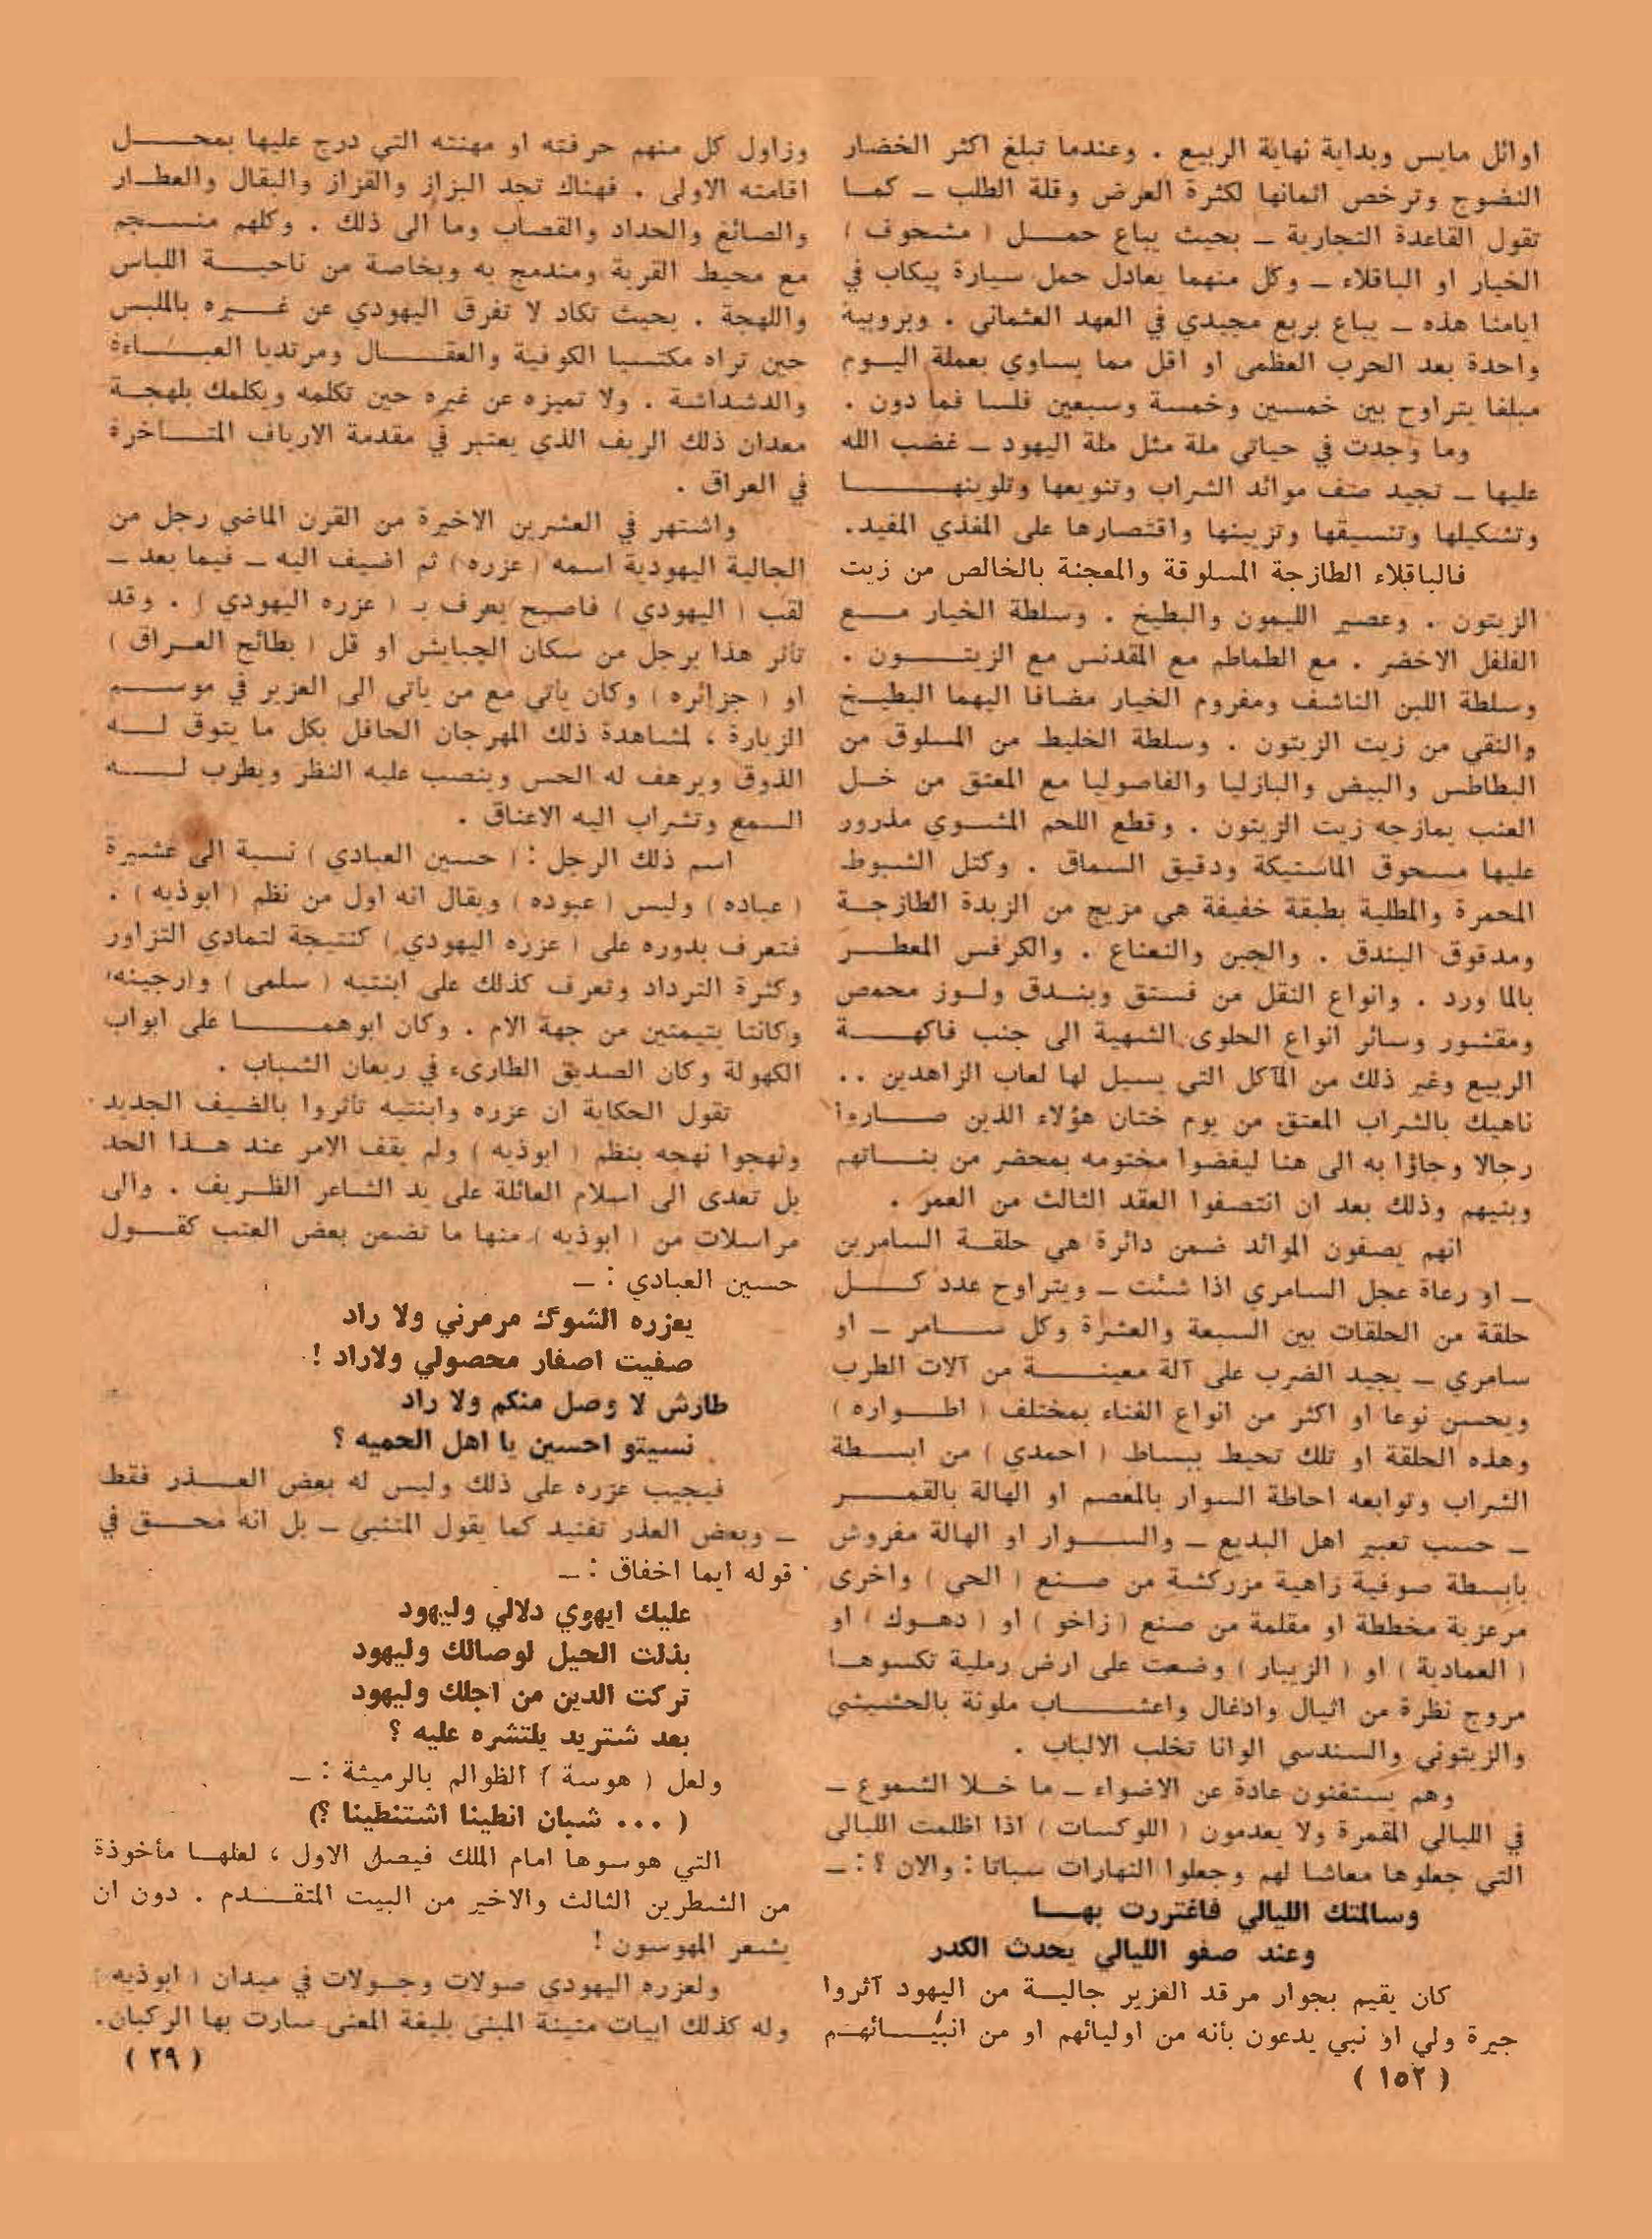 اوائل مايس وبداية نهاية الربيع . وعندما تبلغ اكثر الخضار
النضوج وترخص اثمانها لكثرة العرض وقلة الطلب ــ كمـا
تقول القاعدة التجارية ــ بحيث يباع حمـــل ( مشحوف )
الخيار او الباقلاء ــ وكل منهما يعادل حمل سيارة پيكاب في
ايامنا هذه ــ يباع بربع مجيدي في العهد العثماني . وبروبية
واحدة بعد الحرب العظمى او اقل مما يساوي بعملة اليـوم
مبلغا يتراوح بين خمسين وخمسة وسبعين فلسا فما دون .
وما وجدت في حياتي ملة مثل ملة اليهود ــ غضب الله
عليها ــ تجيد صف موائد الشراب وتنويعها وتلوينهـــا
وتشكيلها وتنسيقها وتزيينها واقتصارها على المغذي المفيد.
فالباقلاء الطازجة المسلوقة والمعجنة بالخالص من زيت
الزيتون . وعصير الليمون والبطيخ . وسلطة الخيار مــع
الفلفل الاخضر . مع الطماطم مع المقدنس مع الزيتـــون .
وسلطة اللبن الناشف ومفروم الخيار مضافا اليهما البطيـخ
والنقي من زيت الزيتون . وسلطة الخليط من المسلوق من
البطاطس والبيض والبازليا والفاصوليا مع المعتق من خـل
العنب يمازجه زيت الزيتون . وقطع اللحم المشـوي مذرور
عليها مسحوق الماستيكة ودقيق السماق . وكتل الشبوط
المحمرة والمطلية بطبقة خفيفة هي مزيج من الزبدة الطازجـة
ومدقوق البندق . والجبن والنعناع . والكرفس المعطــر
بالما ورد . وانواع النقل من فستق وبنـدق ولـوز محمص
ومقشور وسائر انواع الحلوى الشهية الى جنب فاكهـــة
الربيع وغير ذلك من المآكل التي يسيل لها لعاب الزاهدين ..
ناهيك بالشراب المعتق من يوم ختان هؤلاء الذين صــاروا
رجالا وجاؤا به الى هنا ليفضوا مختومه بمحضر من بنــاتهم
وبنيهم وذلك بعد ان انتصفوا العقد الثالث من العمر .
انهم يصفون الموائد ضمن دائرة هي حلقــة السامرين
ــ او رعاة عجل السامري اذا شئت ــ ويتراوح عدد كـــل
حلقة من الحلقات بين السبعة والعشرة وكل ســامر ــ او
سامري ــ يجيد الضرب على آلة معينـــة من آلات الطرب
ويحسن نوعا او اكثر من انواع الغناء بمختلف ( اطـواره )
وهذه الحلقة او تلك تحيط ببساط ( احمدي ) من ابسـطة
الشراب وتوابعه احاطة السوار بالمعصم او الهالة بالقمـــر
ــ حسب تعبير اهل البديع ــ والســوار او الهالة مفروش
بأبسطة صوفية زاهية مزركشة من صـنع ( الحي ) واخرى
مرعزية مخططة او مقلمة من صنع ( زاخو ) او ( دهـوك ) او
( العمادية ) او ( الزيبار ) وضعت على ارض رملية تكسوهـا
مروج نظرة من اثيال وادغال واعشـــاب ملونة بالحشيشي
والزيتوني والسندسي الوانا تخلب الالباب .
وهم يستغنون عادة عن الاضواء ــ ما خـلا الشموع ــ
في الليالي المقمرة ولا يعدمون ( اللوكسات ) اذا اظلمت الليالى
التي جعلوها معاشا لهم وجعلوا النهارات سباتا : والان ؟ : ــ
وسالمتك الليالي فاغتررت بهـــا
وعند صفو الليالي يحدث الكدر
كان يقيم بجوار مرقد العزير جاليــة من اليهود آثروا
جيرة ولي او نبي يدعون بأنه من اوليائهم او من انبيــائهـم
( ١٥٢ )
وزاول كل منهم حرفته او مهنته التي درج عليها بمحـــل
اقامته الاولى . فهناك تجد البزاز والقزاز والبقال والعطـار
والصائغ والحداد والقصاب وما الى ذلك . وكلهم منسـجم
مع محيط القرية ومندمج به وبخاصة من ناحيــة اللباس
واللهجة . بحيث تكاد لا تفرق اليهودي عن غــيره بالملبس
حين تراه مكتسيا الكوفية والعقــال ومرتديا العبــاءة
والدشداشة . ولا تميزه عن غيره حين تكلمه ويكلمك بلهجـة
معدان ذلك الريف الذي يعتبر في مقدمة الارياف المتــاخرة
في العراق .
واشتهر في العشرين الاخيرة من القرن الماضي رجل من
الجالية اليهودية اسمه ( عزره ) ثم اضيف اليه ــ فيما بعد ــ
لقب ( اليهودي ) فاصبح يعرف بـ ( عزره اليهودي ) . وقد
تأثر هذا برجل من سكان الجبايش او قل ( بطائح العـراق )
او ( جزائره ) وكان يأتي مع من يأتي الى العزير في موســم
الزيارة ، لمشاهدة ذلك المهرجان الحافل بكل ما يتوق لــه
الذوق ويرهف له الحس وينصب عليه النظر ويطرب لـــه
السمع وتشراب اليه الاعناق .
اسم ذلك الرجل : ( حسين العبادي ) نسبة الى عشيرة
( عباده ) وليس ( عبوده ) ويقال انه اول من نظم ( ابوذيه ) .
فتعرف بدوره على ( عزره اليهودي ) كنتيجة لتمادي التزاور
وكثرة الترداد وتعرف كذلك على ابنتيه ( سلمى ) و(رجينه)
وكانتا يتيمتين من جهة الام . وكان ابوهمـــا على ابواب
الكهولة وكان الصديق الطارىء في ريعان الشباب .
تقول الحكاية ان عزره وابنتيه تأثروا بالضيف الجديد
ونهجوا نهجه بنظم ( ابوذيه ) ولم يقف الامر عند هـذا الحد
بل تعدى الى اسلام العائلة على يد الشاعر الظـريف . والى
مراسلات من ( ابوذيه ) منها ما تضمن بعض العتب كقـول
حسين العبادي : ــ
يعزره الشوگ مرمرني ولا راد
صفيت اصفار محصولي ولاراد !
طارش لا وصل منكم ولا راد
نسيتو احسين يا اهل الحميه ؟
فيجيب عزره على ذلك وليس له بعض العــذر فقط
ــ وبعض العذر تفنيد كما يقول المتنبي ــ بل انه محــق في
قوله ايما اخفاق : ــ
عليك ايهوي دلالي وليهود
بذلت الحيل لوصالك وليهود
تركت الدين من اجلك وليهود
بعد شتريد يلتشره عليه ؟
ولعل ( هوسة ) الظوالم بالرميثة : ــ
( ... شبان انطينا اشتنطينا ؟)
التي هوسوها امام الملك فيصل الاول ، لعلهـا مأخوذة
من الشطرين الثالث والاخير من البيت المتقــدم . دون ان
يشعر المهوسون !
ولعزره اليهودي صولات وجـولات في ميدان ( ابوذيه )
وله كذلك ابيات متينة المبنى بليغة المعنى سارت بها الركبان.
( ٢٩ )